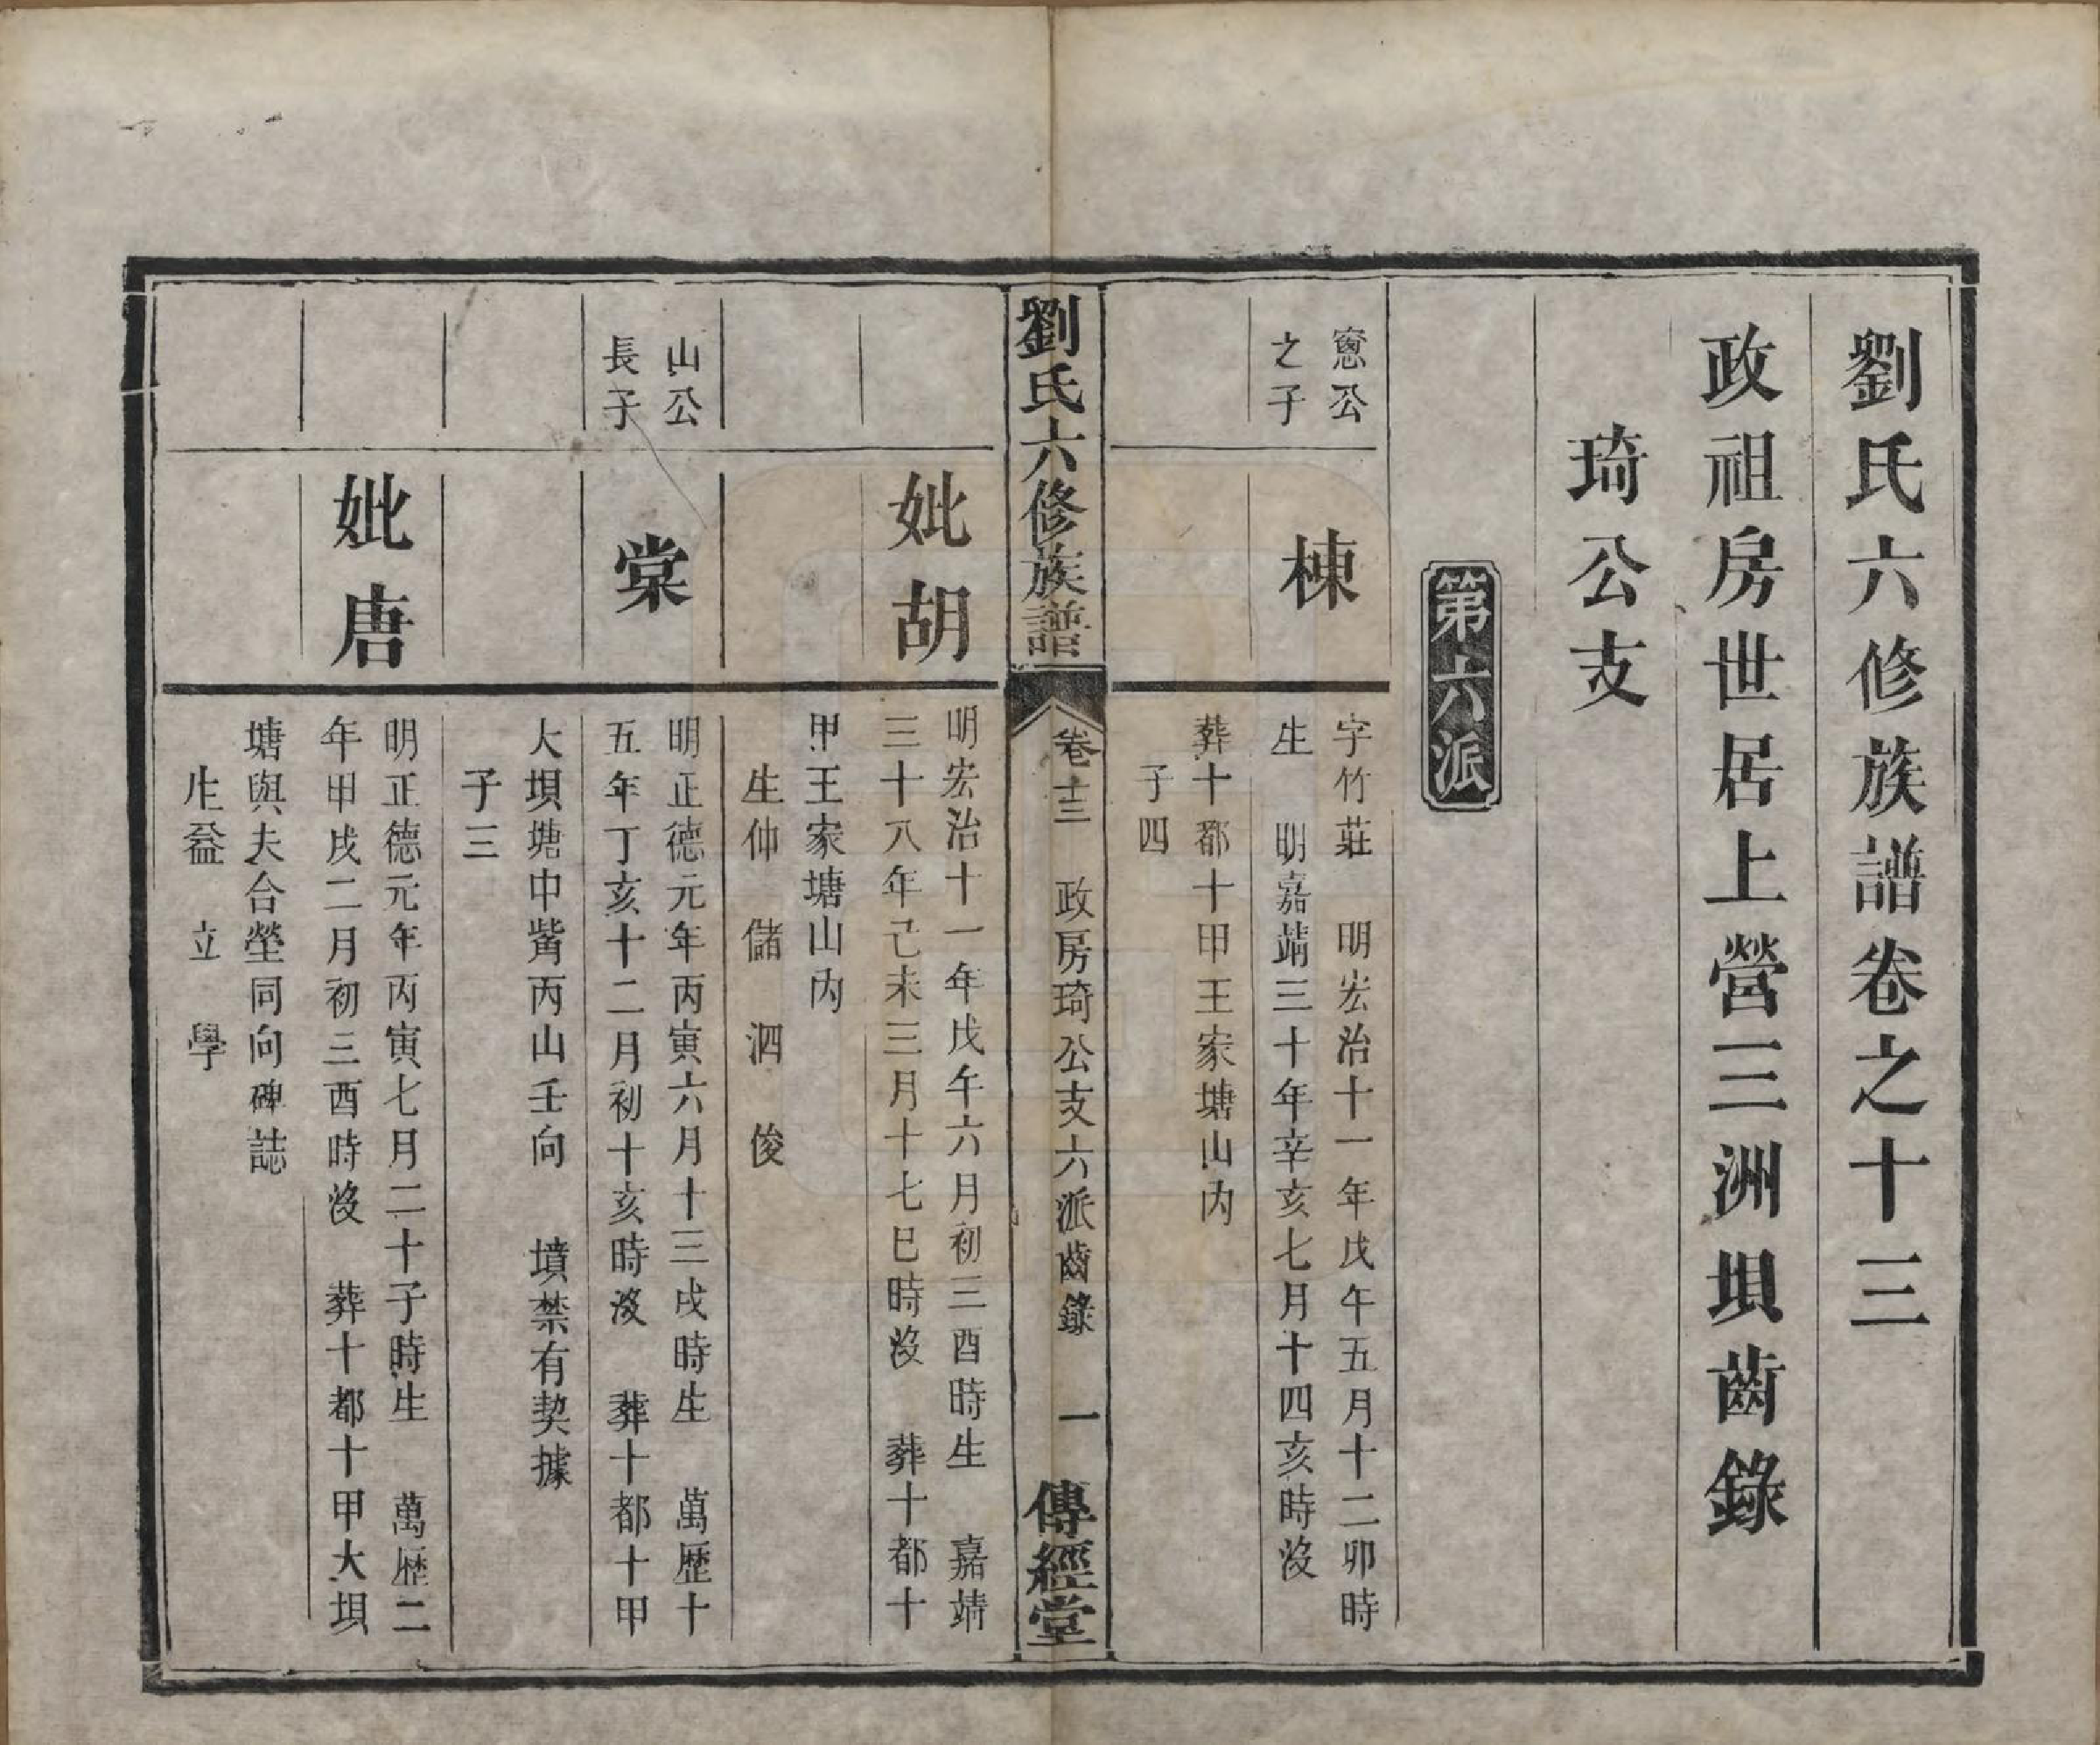 劉氏六修族譜卷之十三
政祖房世居上營三洲垻齒錄
琦公支
第六派
窻公
之子
棟
字竹莊　明宏治十一年戊午五月十二卯時
生　明嘉靖三十年辛亥七月十四亥時沒
葬十都十甲王家塘山內
子四
劉氏六修族譜
卷十三　政房琦公支六派齒錄　一
傳經堂
妣胡
明宏治十一年戊午六月初三酉時生　嘉靖
三十八年己未三月十七巳時沒　葬十都十
甲王家塘山內
生仲　儲　泗　俊
山公
長子
棠
明正德元年丙寅六月十三戌時生　萬歷十
五年丁亥十二月初十亥時沒　葬十都十甲
大垻塘中觜丙山壬向　墳禁有契據
子三
妣唐
明正德元年丙寅七月二十子時生　萬歷二
年甲戌二月初三酉時沒　葬十都十甲大垻
塘與夫合塋同向碑誌
生益　立　學